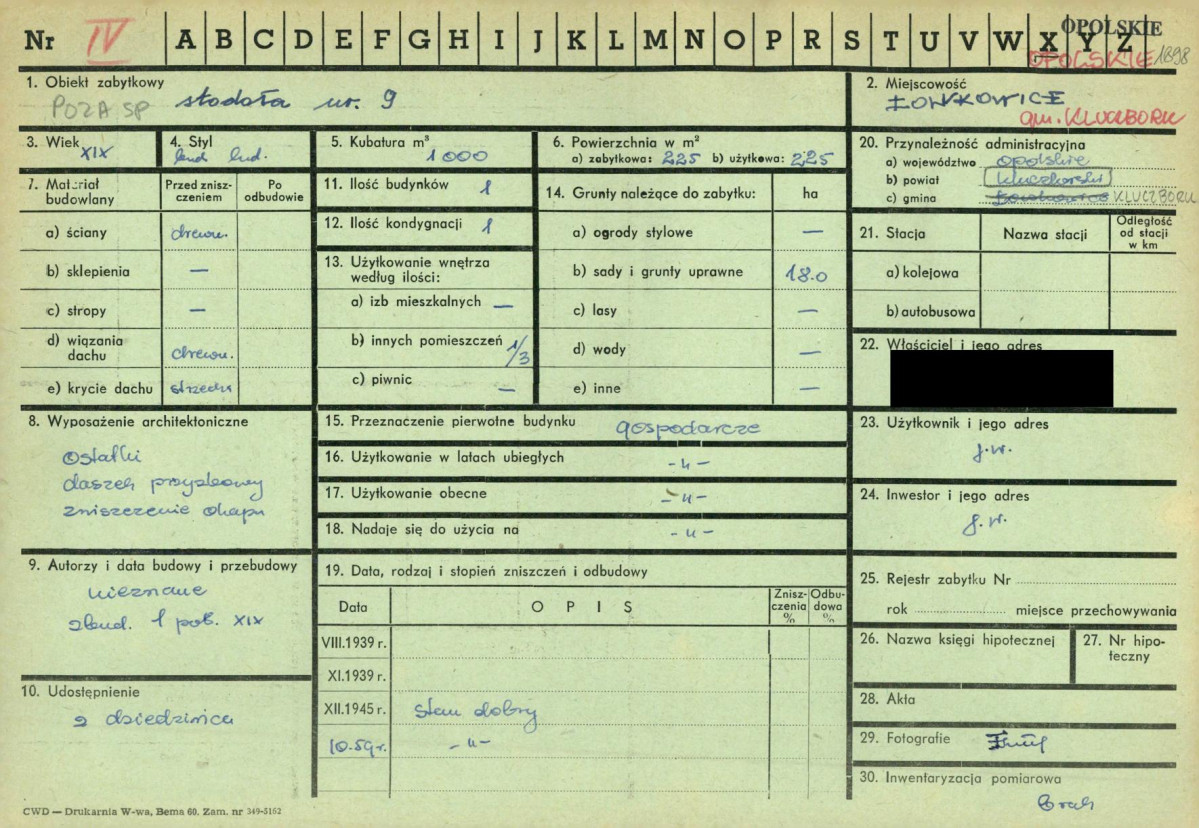 Nr IV A B C D E F G H I J K L M N O P R S T U V W X Y Z
OPOLSKIE
OPOLSKIE 1898
1. Obiekt zabytkowy
POZA SP stodoła nr. 9
2. Miejscowość
ŁOWKOWICE
gm. KLUCZBORK
3. Wiek XIX
4. Styl bud. lud.
5. Kubatura m³ 1000
6. Powierzchnia w m²
a) zabytkowa: 225 b) użytkowa: 225
7. Materiał budowlany
Przed zniszczeniem
Po odbudowie
a) ściany drewn.
b) sklepienia —
c) stropy —
d) wiązania dachu drewn.
e) krycie dachu strzecha
11. Ilość budynków 1
12. Ilość kondygnacji 1
13. Użytkowanie wnętrza według ilości:
a) izb mieszkalnych —
b) innych pomieszczeń 1/3
c) piwnic —
14. Grunty należące do zabytku: ha
a) ogrody stylowe —
b) sady i grunty uprawne 18.0
c) lasy —
d) wody —
e) inne —
20. Przynależność administracyjna
a) województwo opolskie
b) powiat kluczborski
c) gmina Łowkowice KLUCZBORK
21. Stacja
Nazwa stacji
Odległość od stacji w km
a) kolejowa
b) autobusowa
22. Właściciel i jego adres
8. Wyposażenie architektoniczne
ostatki
daszek przyzbowy
zniszczenie okapu
15. Przeznaczenie pierwotne budynku gospodarcze
16. Użytkowanie w latach ubiegłych -"-
17. Użytkowanie obecne -"-
18. Nadaje się do użycia na -"-
23. Użytkownik i jego adres
j.w.
24. Inwestor i jego adres
j.w.
9. Autorzy i data budowy i przebudowy
nieznane
zbud. 1 poł. XIX
10. Udostępnienie
z dziedzińca
19. Data, rodzaj i stopień zniszczeń i odbudowy
Data
OPIS
Zniszczenia %
Odbudowa %
VIII.1939 r.
XI.1939 r.
XII.1945 r. stan dobry
10.59 r. -"-
25. Rejestr zabytku Nr
rok miejsce przechowywania
26. Nazwa księgi hipotecznej
27. Nr hipoteczny
28. Akta
29. Fotografie
30. Inwentaryzacja pomiarowa
brak
CWD — Drukarnia W-wa, Bema 60. Zam. nr 349-5162